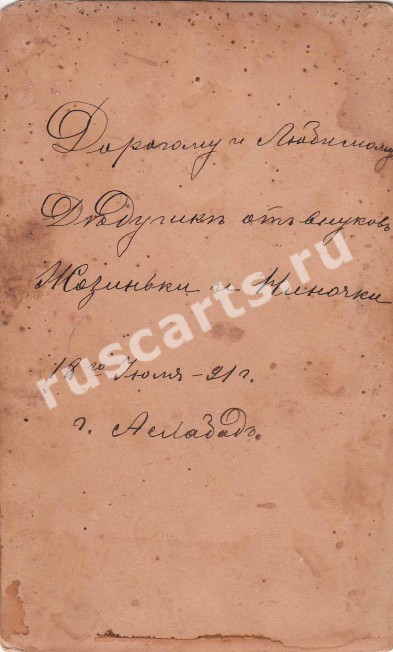 Дорогому и Любимому
Дѣдушкѣ отъ внуковъ
Жозиньки и Ниночки
18го Июля - 21 г.
г. Асхабадъ.
ruscarts.ru